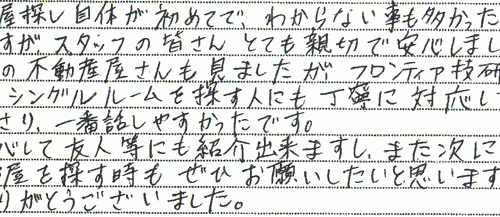 屋探し自体が初めてで、わからない事も多かった
すがスタッフの皆さんとても親切で安心しまし
の不動産屋さんも見ましたが、フロンティア技研
シングルルームを探す人にも丁寧に対応し
さり、一番話しやすかったです。
心して友人等にも紹介出来ますし、また次に
屋を探す時もぜひお願いしたいと思います
りがとうございました。